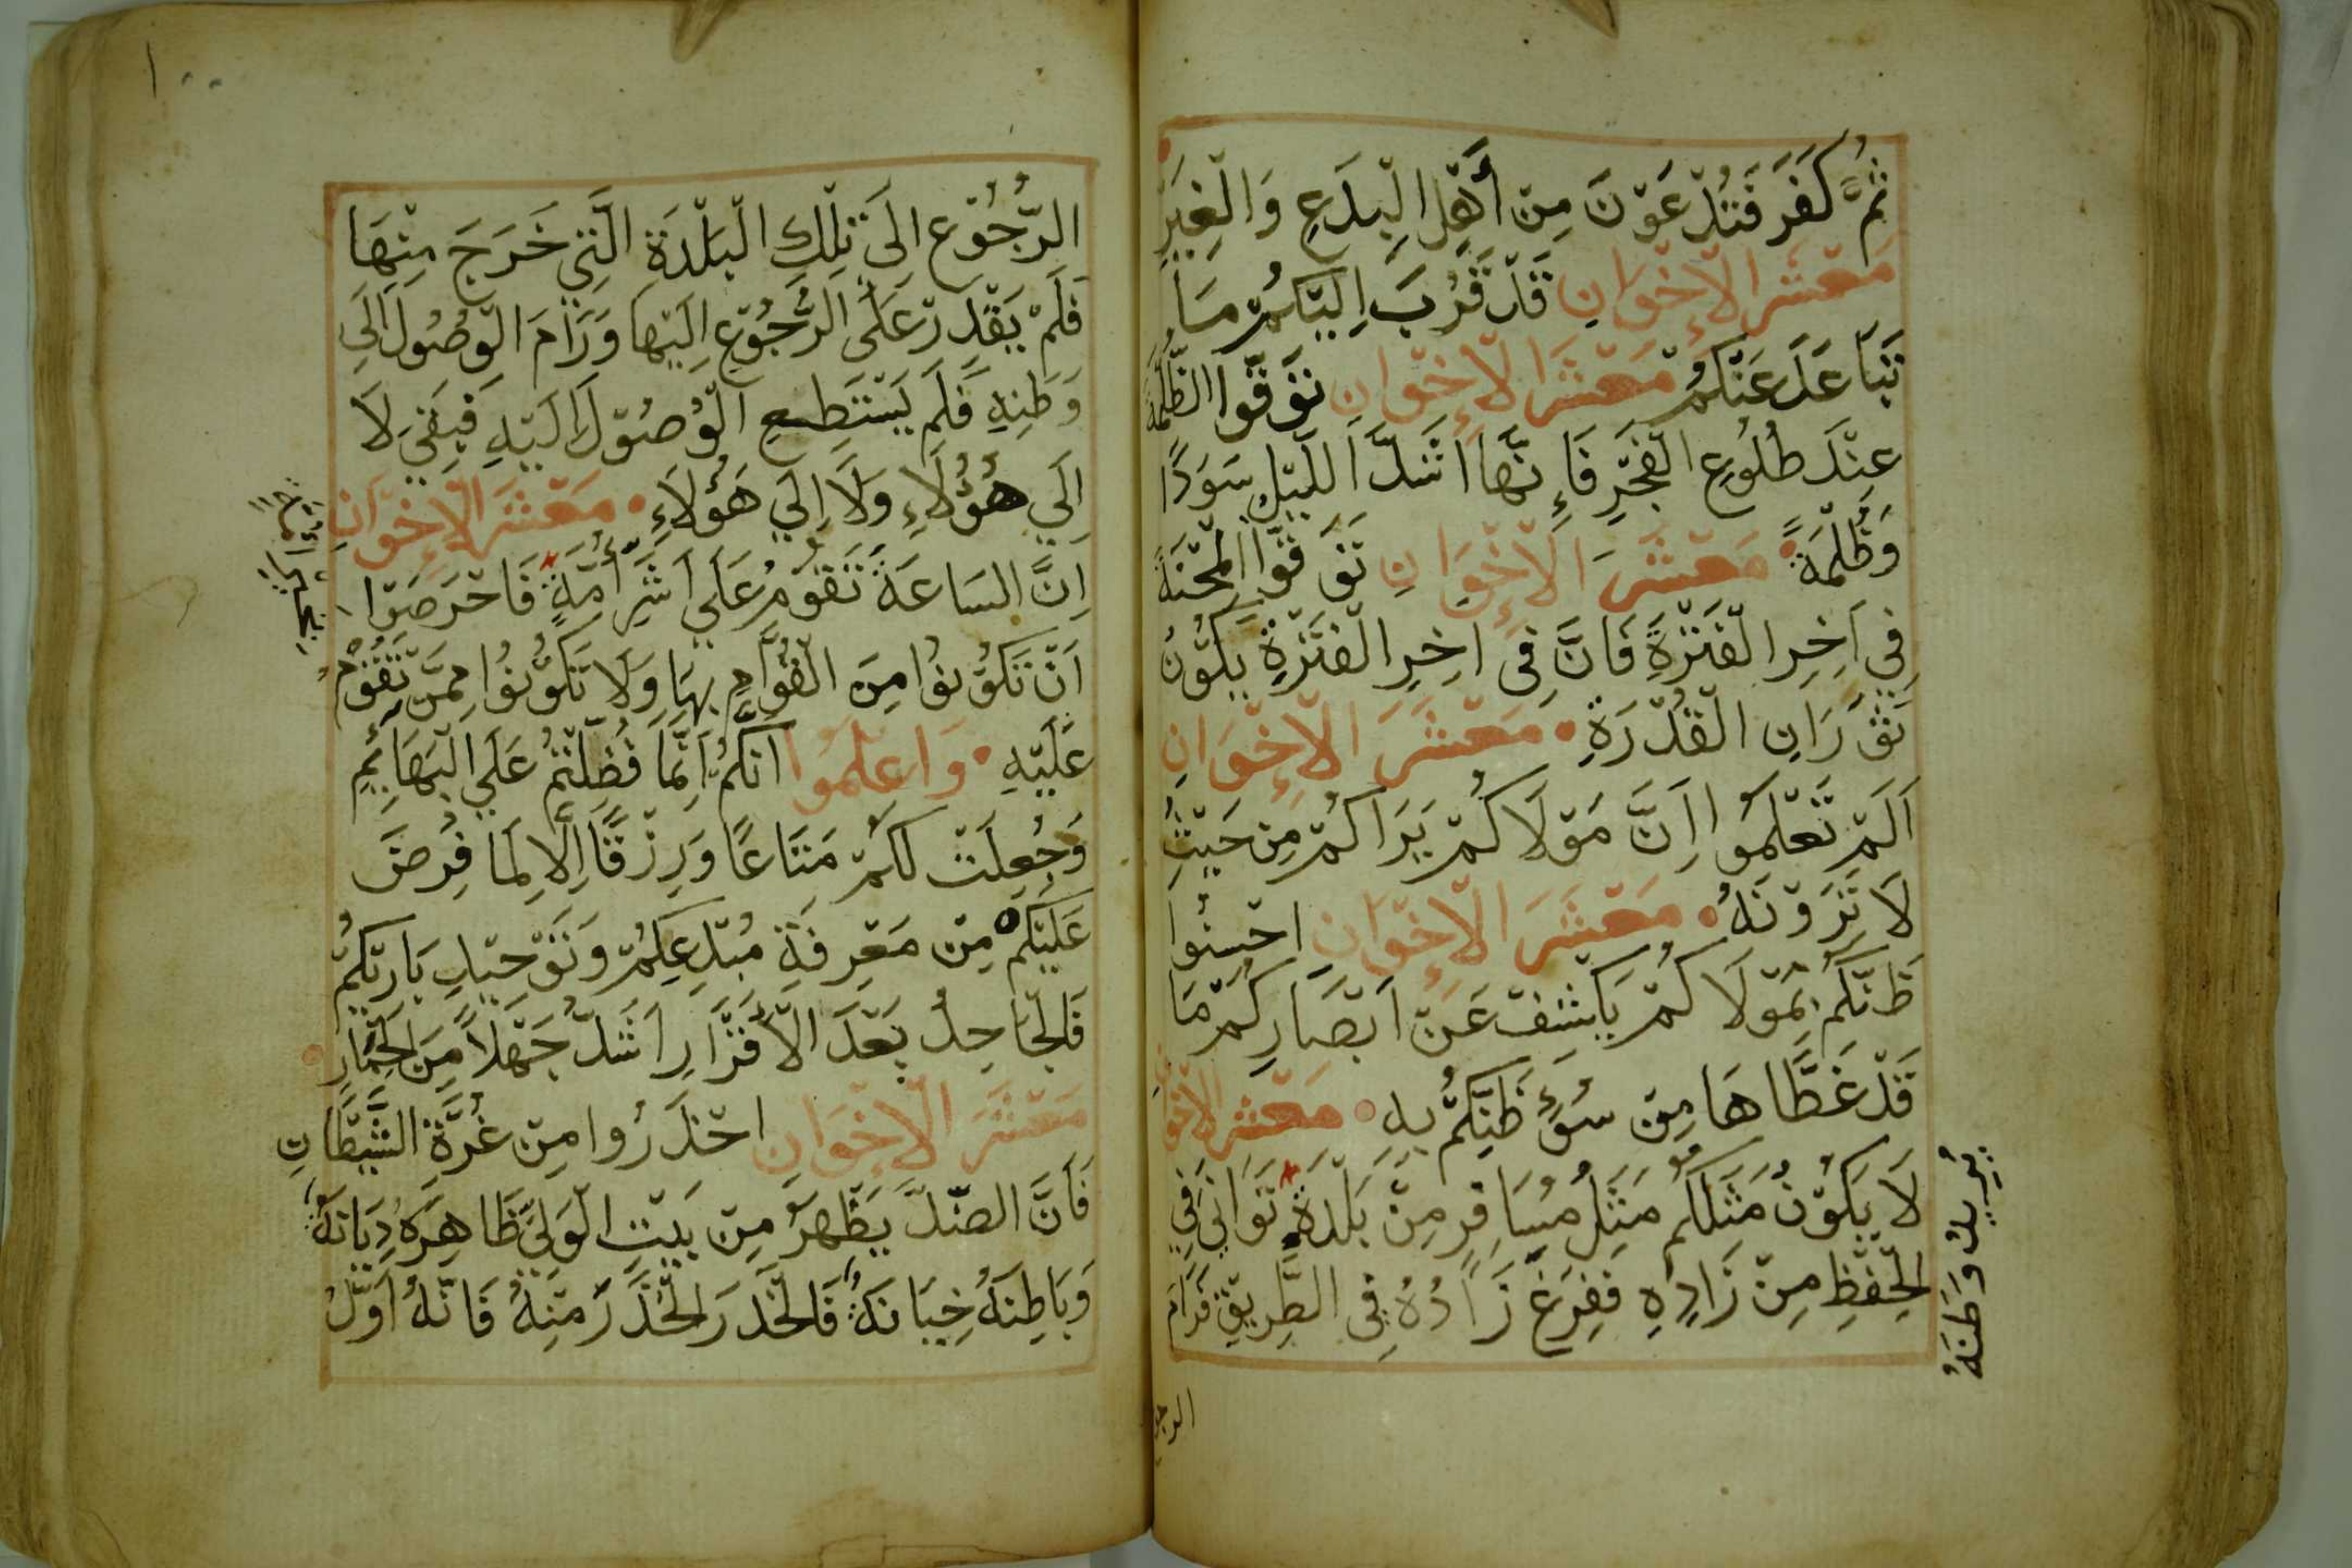 ثُمَّ كَفَرَ فَتُدْعَوْنَ مِنْ أَهْلِ الْبِدَعِ وَالْغِيَرِ
مَعْشَرَ الْإِخْوَانِ قَدْ قَرُبَ اِلَيْكُمْ مَا
تَبَاعَدَ عَنْكُمْ مَعْشَرَ الْإِخْوَانِ تَوَقَّوا الظُّلْمَةَ
عِنْدَ طُلُوعِ الْفَجْرِ فَاِنَّهَا اَشَدَّ اللَّيْلِ سَوَدًا
وَظُلْمَةً مَعْشَرَ الْإِخْوَانِ تَوَقَّوْا الْمِحْنَةَ
فِي اَخِرِ الْفَتْرَةِ فَاِنَّ فِي اَخِرِ الْفَتْرَةِ يَكُوْنُ
ثَوَرَانِ الْقُدْرَةِ مَعْشَرَ الْإِخْوَانِ
اَلَمْ تَعْلَمُوا اِنَّ مَوْلَاكُمْ يَرَاكُمْ مِنْ حَيْثُ
لَا تَرَوْنَهُ مَعْشَرَ الْإِخْوَانِ احْسِنُوا
ظَنَّكُمْ بِمَوْلَاكُمْ يَكْشِفْ عَنْ اَبْصَارِكُمْ مَا
قَدْ غَطَّاهَا مِنْ سُوْءِ ظَنِّكُمْ بِهِ مَعْشَرَ الْاِخْوَانِ
لَا يَكُوْنُ مَثَلُكُمْ مَثَلُ مُسَافِرٍ مِنْ بَلْدَةٍ تَوَانَى فِي
الْحِفْظِ مِنْ زَادِهِ فَفَرَغَ زَادُهُ فِي الطَّرِيْقِ فَرَامَ
يُرِيْدُ وَطَنَهُ
الرجو
الرُّجُوْعِ اِلَى تِلْكَ الْبَلْدَةِ الَّتِي خَرَجَ مِنْهَا
فَلَمْ يَقْدِرْ عَلَى الرُّجُوْعِ اِلَيْهَا وَرَامَ الْوُصُوْلَ اِلَى
وَطَنِهِ فَلَمْ يَسْتَطِعِ الْوُصُوْلَ اِلَيْهِ فَبَقِيَ لَا
اِلَي هَؤُلَاءِ وَلَا اِلَي هَؤُلَاءِ مَعْشَرَ الْإِخْوَانِ
اِنَّ السَاعَةَ تَقُوْمُ عَلَي اَشَرِّ أُمَّةٍ فَاحْرَصُوْا
اَنْ تَكُوْنُوْا مِنَ الْقُوَّامِ بِهَا وَلَا تَكُوْنُوْا مِمَّنْ تَقُوْمُ
عَلَيْهِ وَاعْلَمُوا اَنَّكُمْ اِنَّمَا فُضِّلْتُمْ عَلَى الْبَهَايِمِ
وَجُعِلَتْ لَكُمْ مَتَاعًا وَرِزْقًا اِلَّا لِمَا فُرِضَ
عَلَيْكُمْ مِنْ مَعْرِفَةِ مُبْدِعِكُمْ وَتَوْحِيْدِ بَارِئِكُمْ
فَالْجَاحِدُ بَعْدَ الْاَقْرَارِ اَشَدُّ جَهْلًا مِنَ الْحِمَارِ
مَعْشَرَ الْإِخْوَانِ احْذَرُوا مِنْ غُرَّةِ الشَّيْطَانِ
فَاَنَّ الضِّدَّ يَظْهَرُ مِنْ بَيْتِ الْوَلِيِّ ظَاهِرَهُ دِيَانَةٌ
وَبَاطِنَهُ خِيَانَةٌ فَالْحَذَرَ الْحَذَرَ مِنْهُ فَانَّهُ اَوَّلُ
١٠٠